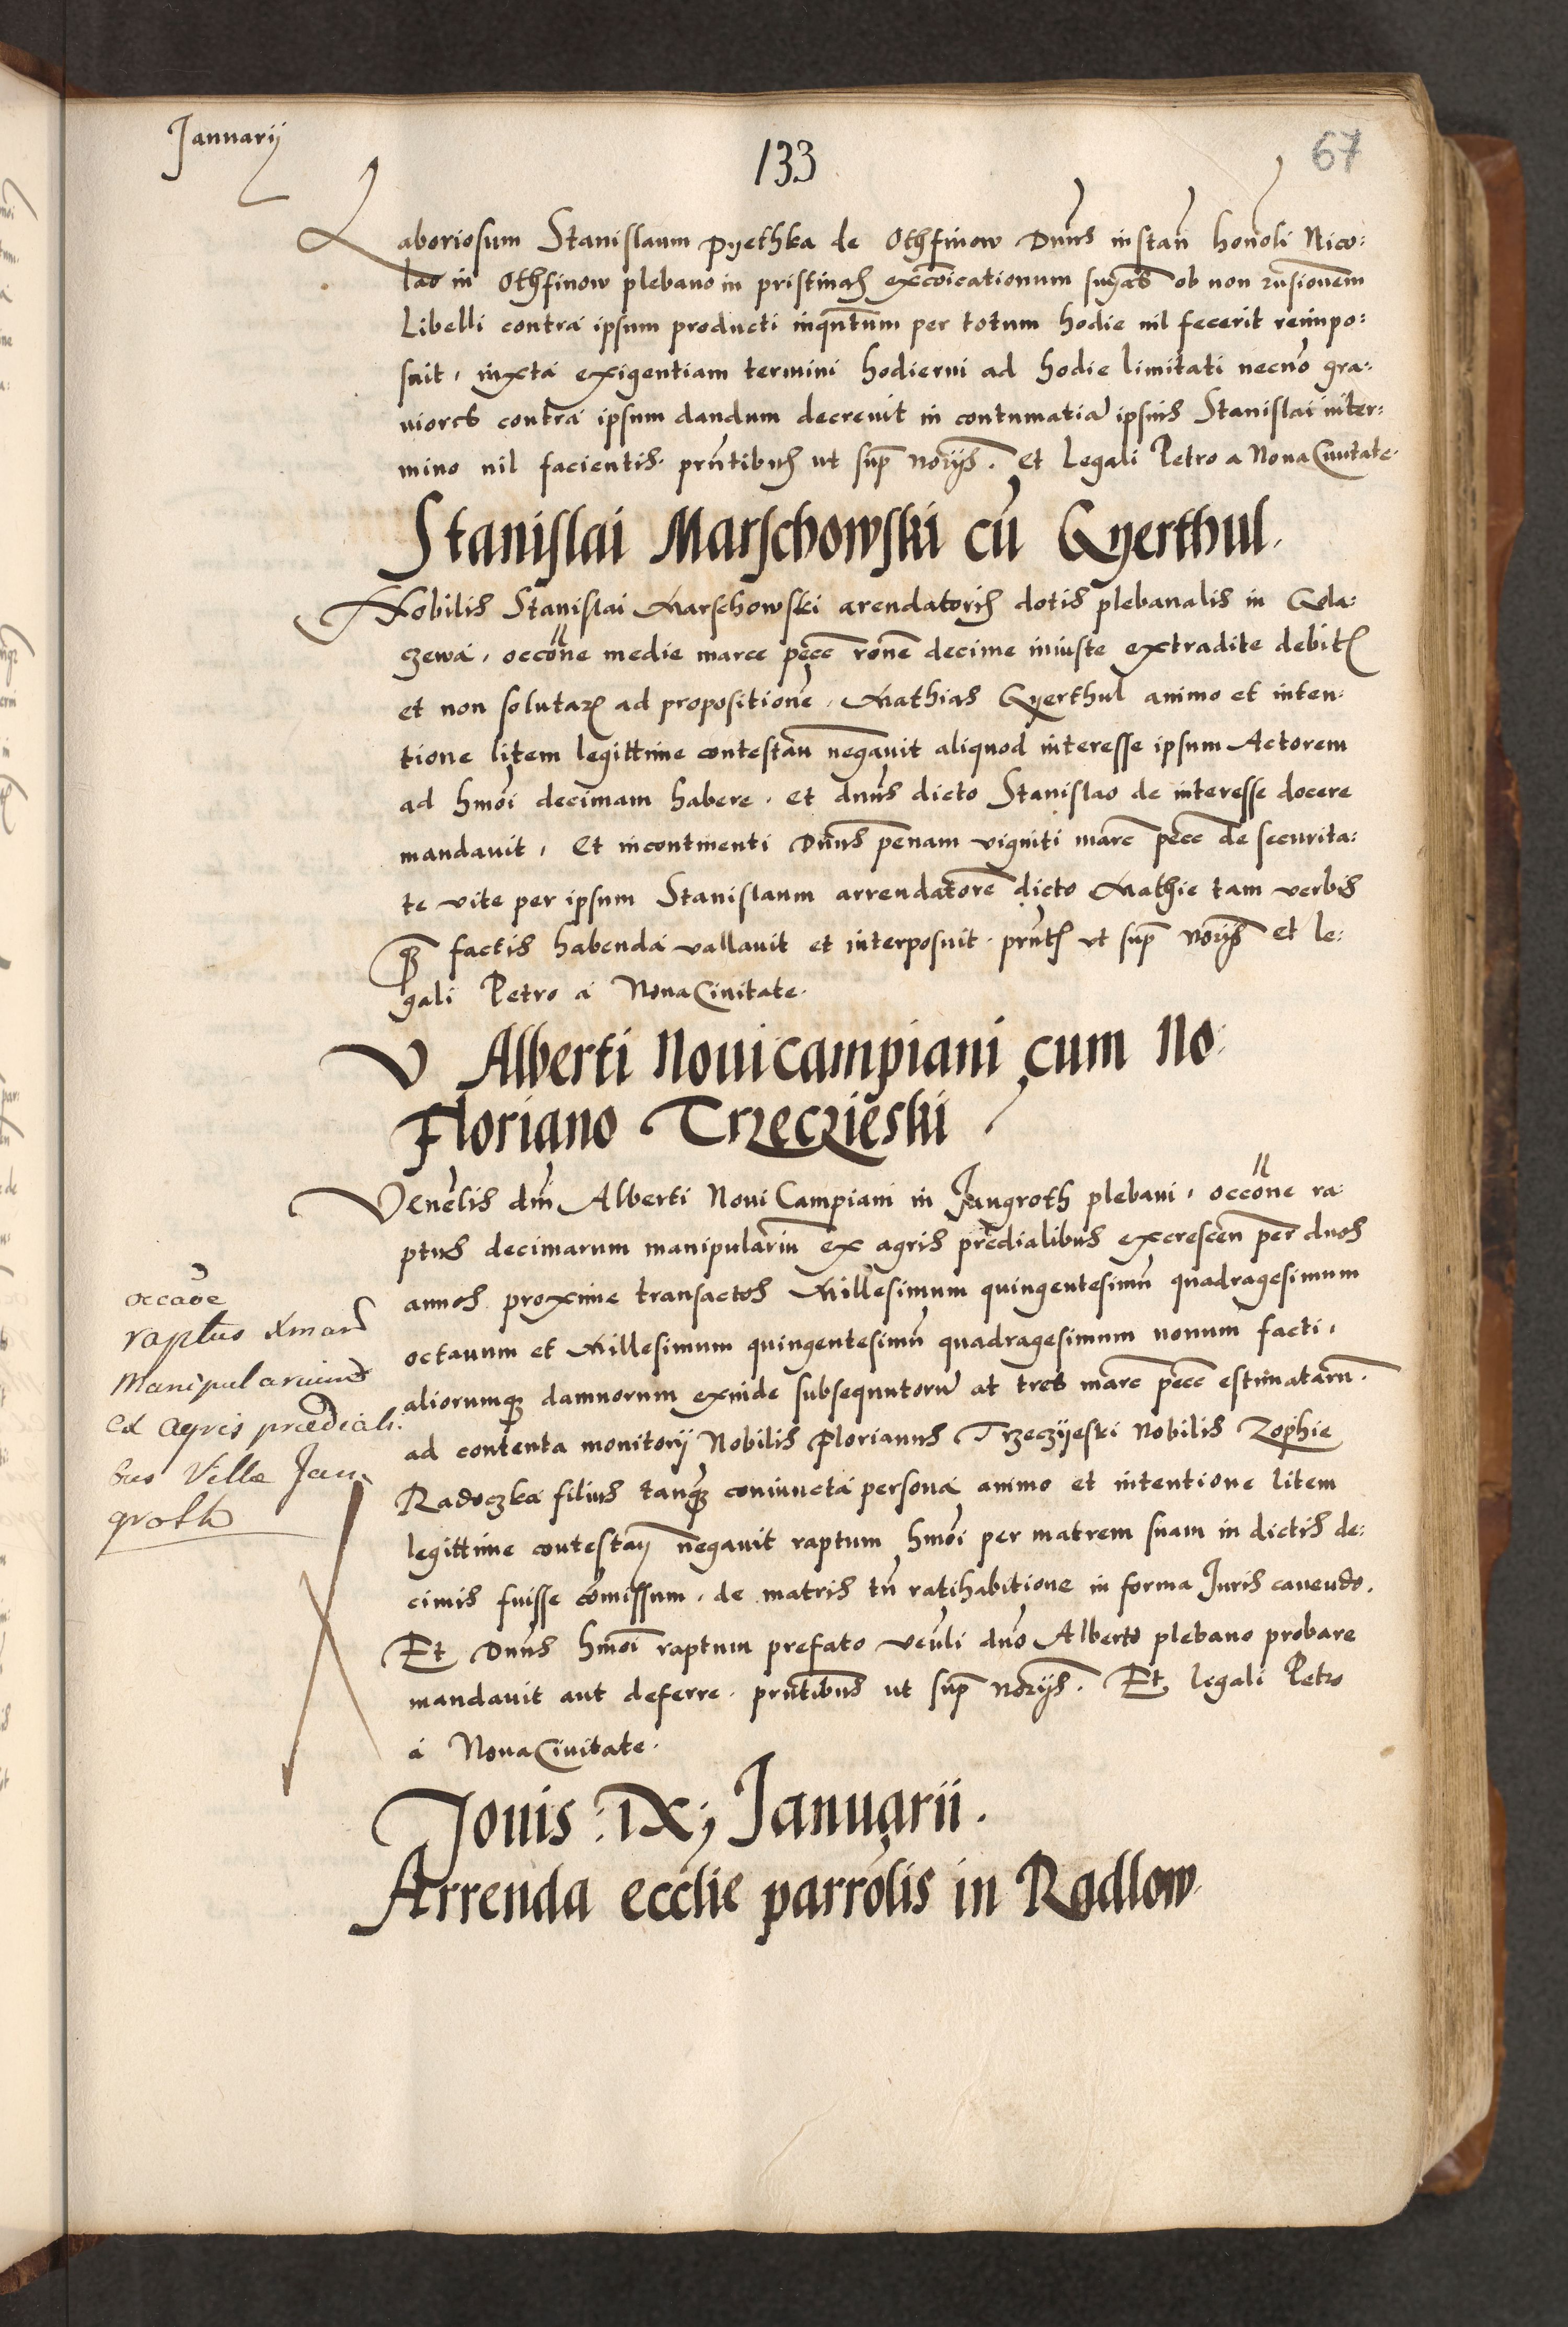 Januarij
133
67
Laboriosum Stanislaum Pyethka de Othfinow Dnus instan honoli Nico:
lao in Othfinow plebano in pristinas excoicationum snias ob non rusionem
Libelli contra ipsum producti inquntum per totum hodie nil fecerit reimpo:
suit, iuxta exigentiam termini hodierni ad hodie limitati necno gra:
uiores contra ipsum dandum decreuit in contumatia ipsius Stanislai in ter:
mino nil facientis. prntibus ut sup norijs. Et legali Petro a Noua Ciuitate.
Stanislai Marschowski cu Gyerthul.
Nobilis Stanislai Marschowski arendatoris dotis plebanalis in Gola:
czewa, occone medie marce pecc rone decime iniuste extradite debit
et non solutar ad propositione, Mathias Gyerthul animo et inten:
tione litem legittime contestan negauit aliquod interesse ipsum Actorem
ad hmoi decimam habere. Et dnus dicto Stanislao de interesse docere
mandauit, Et incontinenti Dnus penam viginti marc pecc de securita:
te vite per ipsum Stanislaum arrendatore dicto Mathie tam verbis
q factis habenda vallauit et interposuit. prnt vt sup norijs et le:
gali Petro a Noua Ciuitate.
V Alberti Nouicampiani cum No:
Floriano Trzeczieski
Venelis dni Alberti Noui Campiani in Jangroth plebani, occone ra:
ptus decimarum manipulariu ex agris predialibus excrescen per duos
annos proxime transactos Millesimum quingentesimu quadragesimum
octauum et Millesimum quingentesimu quadragesimum nonum facti,
aliorumq damnorum exinde subsequutoru at tres marc pecc estimataru.
ad contenta monitorij Nobilis Florianus Trzeczyeski Nobilis Zophie
Radoczka filius tanq coniuncta persona animo et intentione litem
legittime contestan negauit raptum hmoi per matrem suam in dictis de:
cimis fuisse comissum, de matris tn ratihabitione in forma Juris cauendo.
Et Dnus hmoi raptum prefato venli dno Alberto plebano probare
mandauit aut deferre. prntibus ut sup norijs. Et legali Petro
a Noua Ciuitate.
occaoe
raptus Xmar
Manipularium
ex agris prædiali:
bus Villæ Jan
groth
Jouis IX; Januarii.
Arrenda ecclie parrolis in Radlow.